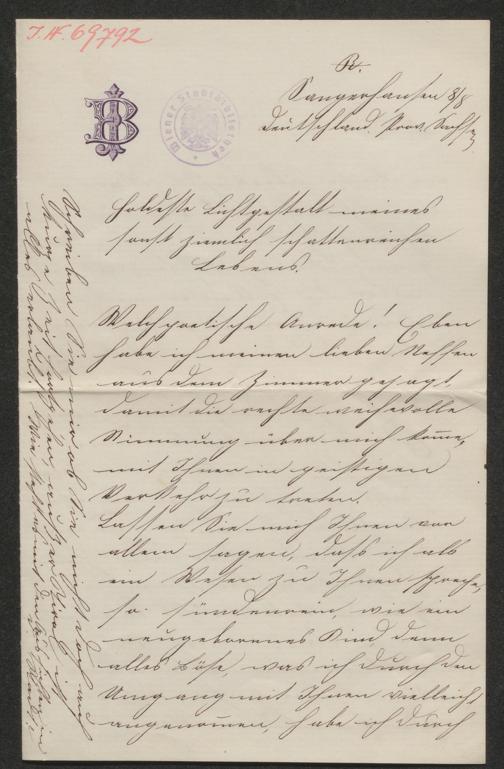 I.N. 69792
B
Wiener Stadtbibliothek
R.
Sangerhausen 8/8
Deutschland. Prov. Sachsen
Holdeste Lichtgestalt meines
sonst ziemlich schattenreichen
Lebens.
Welch poetische Anrede! Eben
habe ich meinen lieben Neffen
aus dem Zimmer gejagt,
damit die rechte weihevolle
Stimmung über mich komme,
mit Ihnen in geistigen
Verkehr zu treten.
Lassen Sie mich Ihnen vor
allem sagen, dass ich als
ein Wesen zu Ihnen spreche,
so sündenrein, wie ein
neugeborenes Kind, denn
alles Böse, was ich durch den
Umgang mit Ihnen vielleicht
angenommen, habe ich durch
Schreiben Sie mir ob Sie nicht doch auf
kurze Zeit
alles